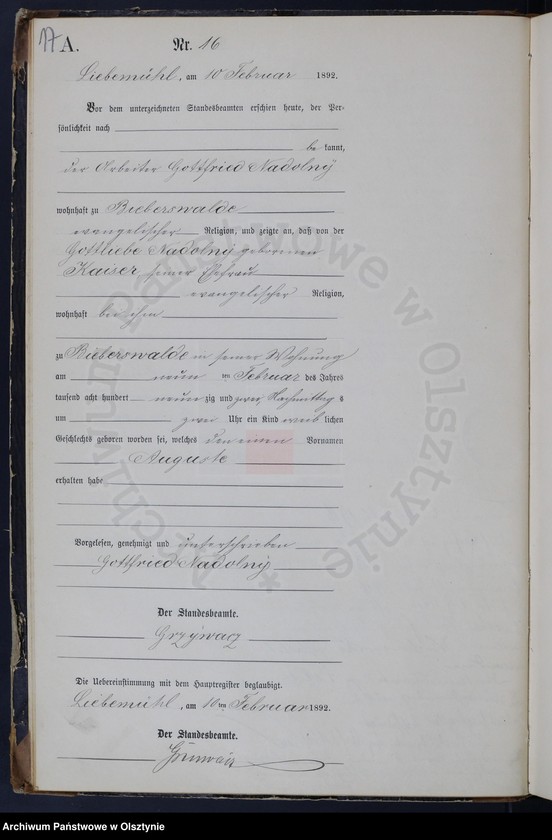 17 A. Nr. 16
Liebemühl, am 10 Februar 1892.
Vor dem unterzeichneten Standesbeamten erschien heute, der Per-
sönlichkeit nach
be kannt,
der Arbeiter Gottfried Nadolny
wohnhaft zu Bieberswalde
evangelischer Religion, und zeigte an, daß von der
Gottliebe Nadolny geborenen
Kaiser seiner Ehefrau
evangelischer Religion,
wohnhaft bei ihm
zu Bieberswalde in seiner Wohnung
am neun ten Februar des Jahres
tausend acht hundert neun zig und zwei Nachmittag s
um zwei Uhr ein Kind weib lichen
Geschlechts geboren worden sei, welches den einen Vornamen
Auguste
erhalten habe
Vorgelesen, genehmigt und unterschrieben
Gottfried Nadolny
Der Standesbeamte.
Grzywacz
Die Uebereinstimmung mit dem Hauptregister beglaubigt.
Liebemühl, am 10 ten Februar 1892.
Der Standesbeamte.
Archiwum Państwowe w Olsztynie
Archiwum Państwowe w Olsztynie